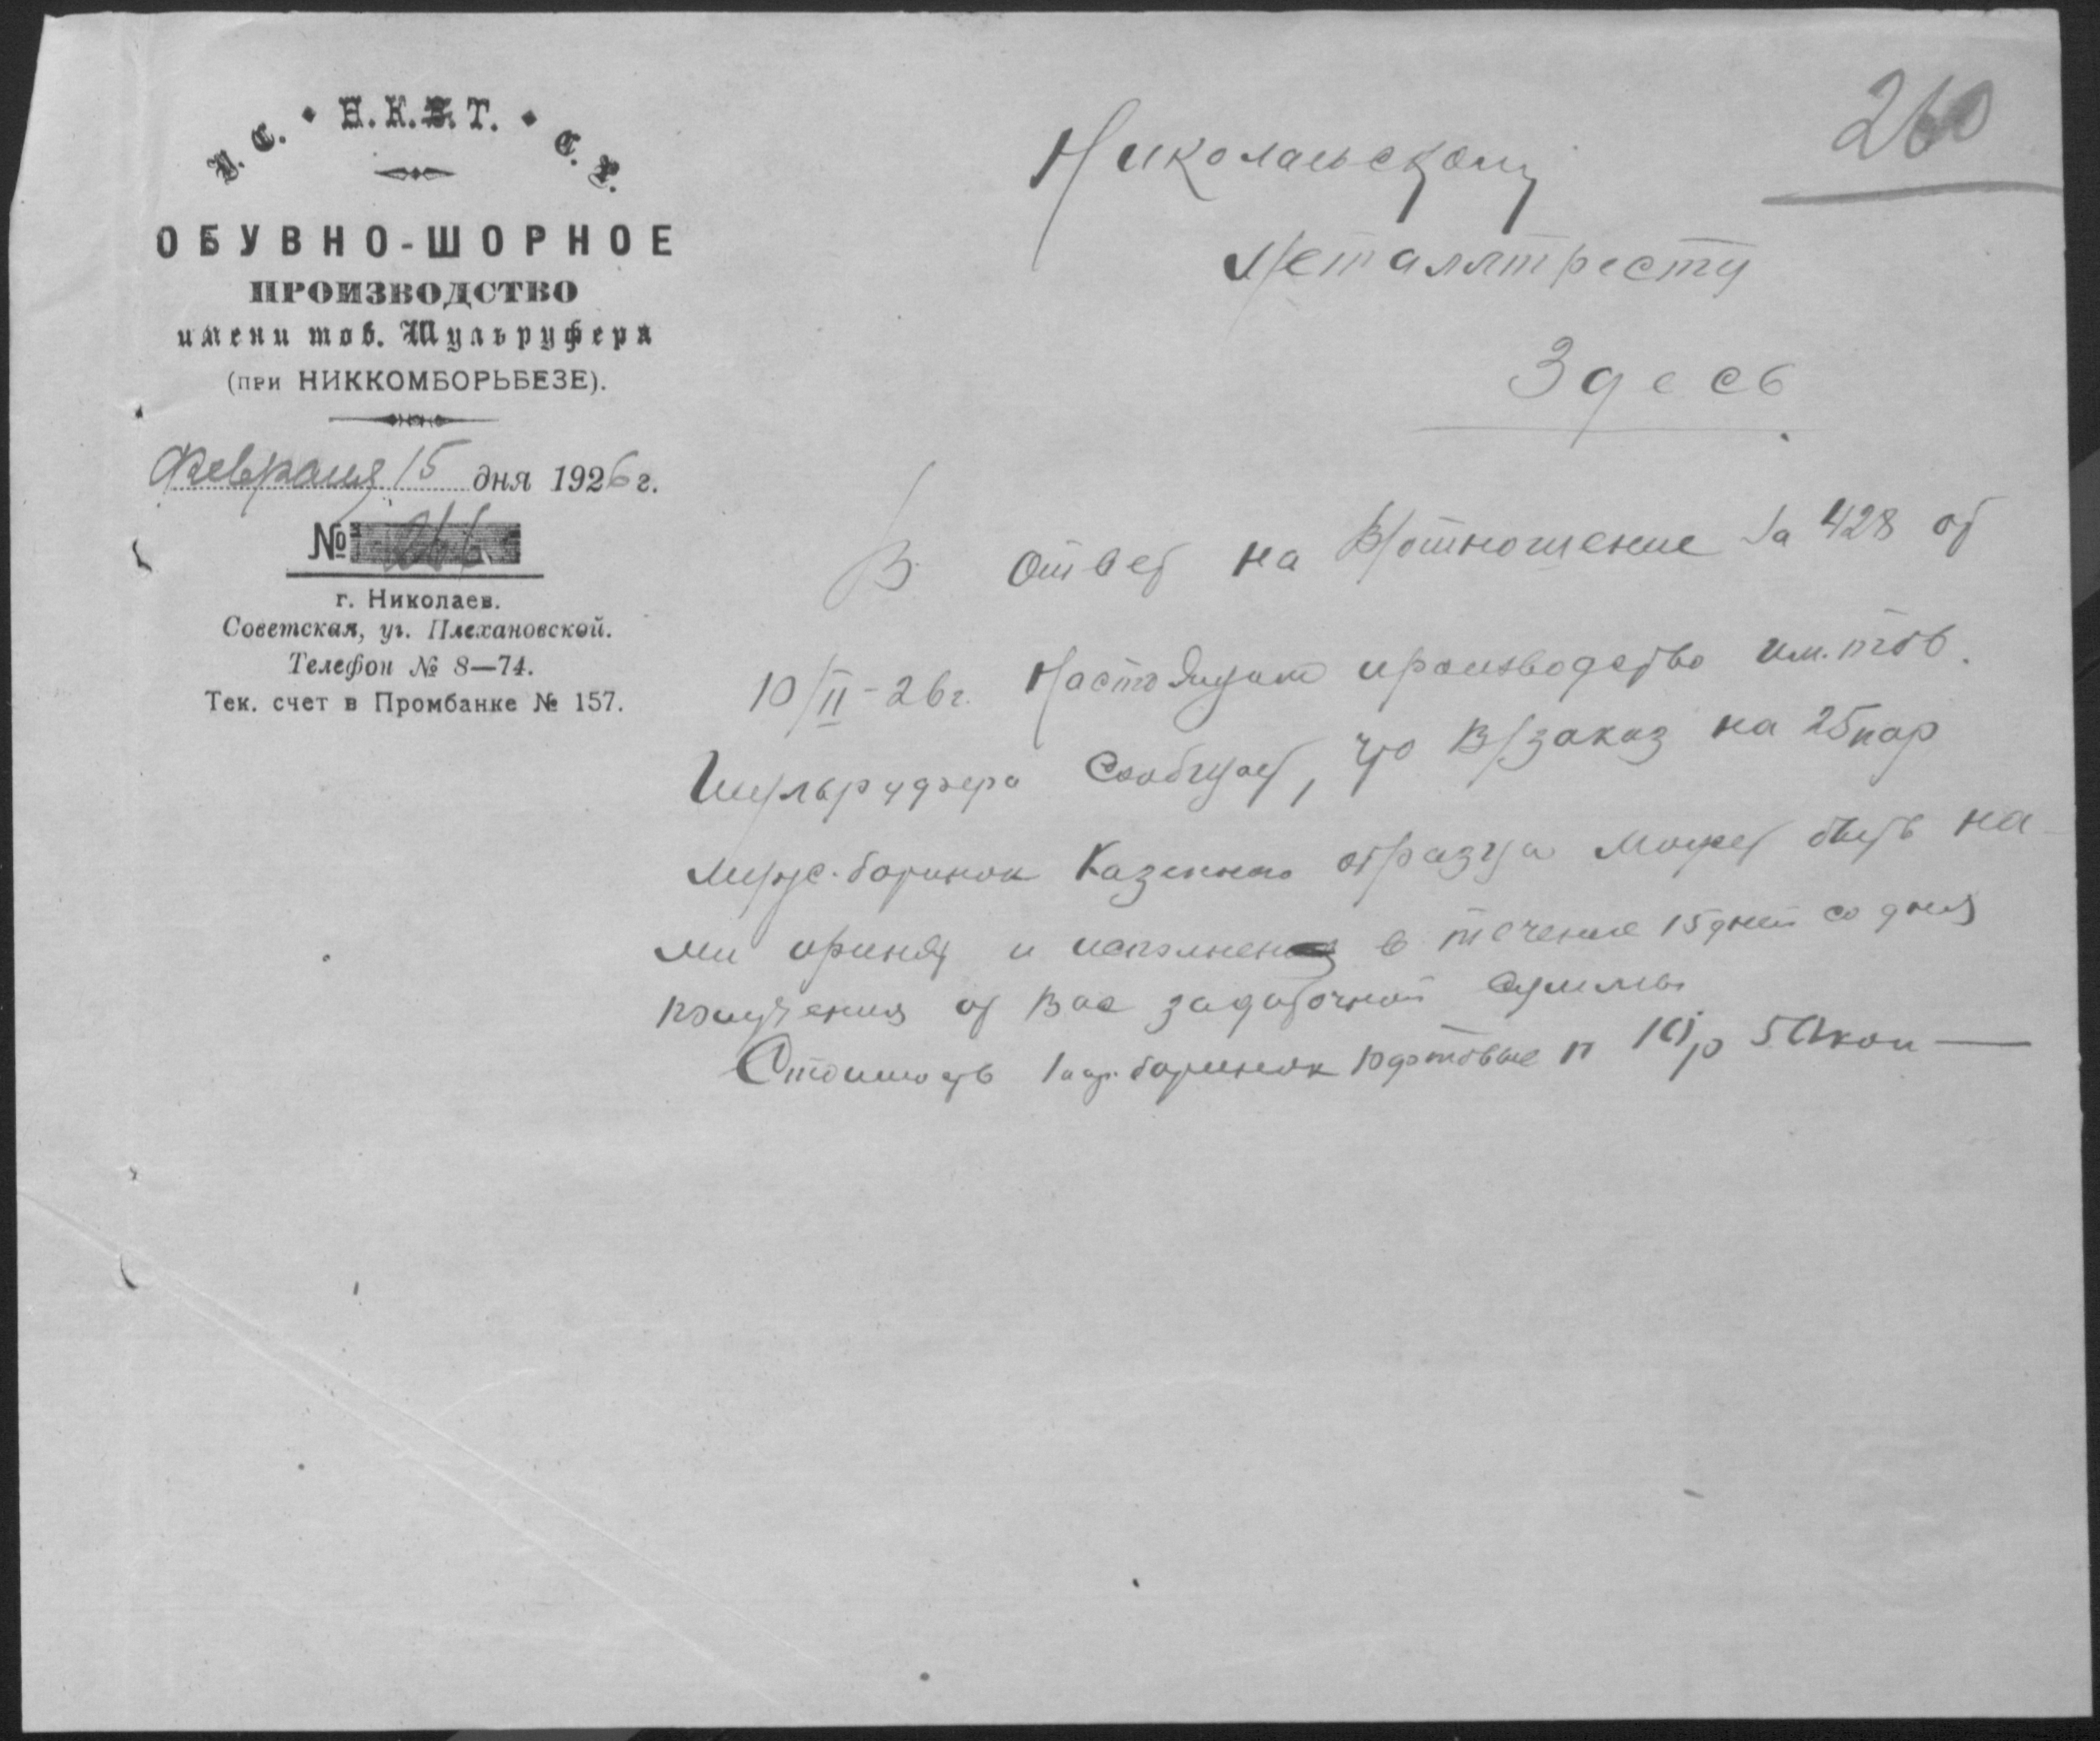 У. С. • Н.К.В.Т. • С. Р.
ОБУВНО-ШОРНОЕ
ПРОИЗВОДСТВО
имени тов. Шульруфера
(при НИККОМБОРЬБЕЗЕ).
Февраля 15 дня 1926 г.
№ 266
г. Николаев.
Советская, уг. Плехановской.
Телефон № 8—74.
Тек. счет в Промбанке № 157.
260
Николаевскому
Металлтресту
Здесь
В ответ на В/отношение за 428 от
10/II-26г. Настоящим производство им. тов.
Шульруфера сообщает, что В/заказ на 25 пар
мужс. ботинок казенного образца может быть на-
ми принят и исполнен в течение 15 дней со дня
получения от Вас задаточной суммы
Стоимость 1 пар. ботинок юфтовые п 10 р 50 коп —